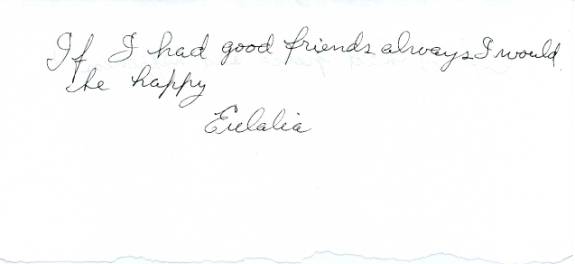 If I had good friends always I would
be happy
Eulalia